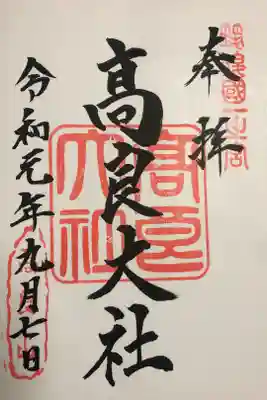 奉拝
筑後國一之宮
高良大社
高良大社
令和元年九月七日